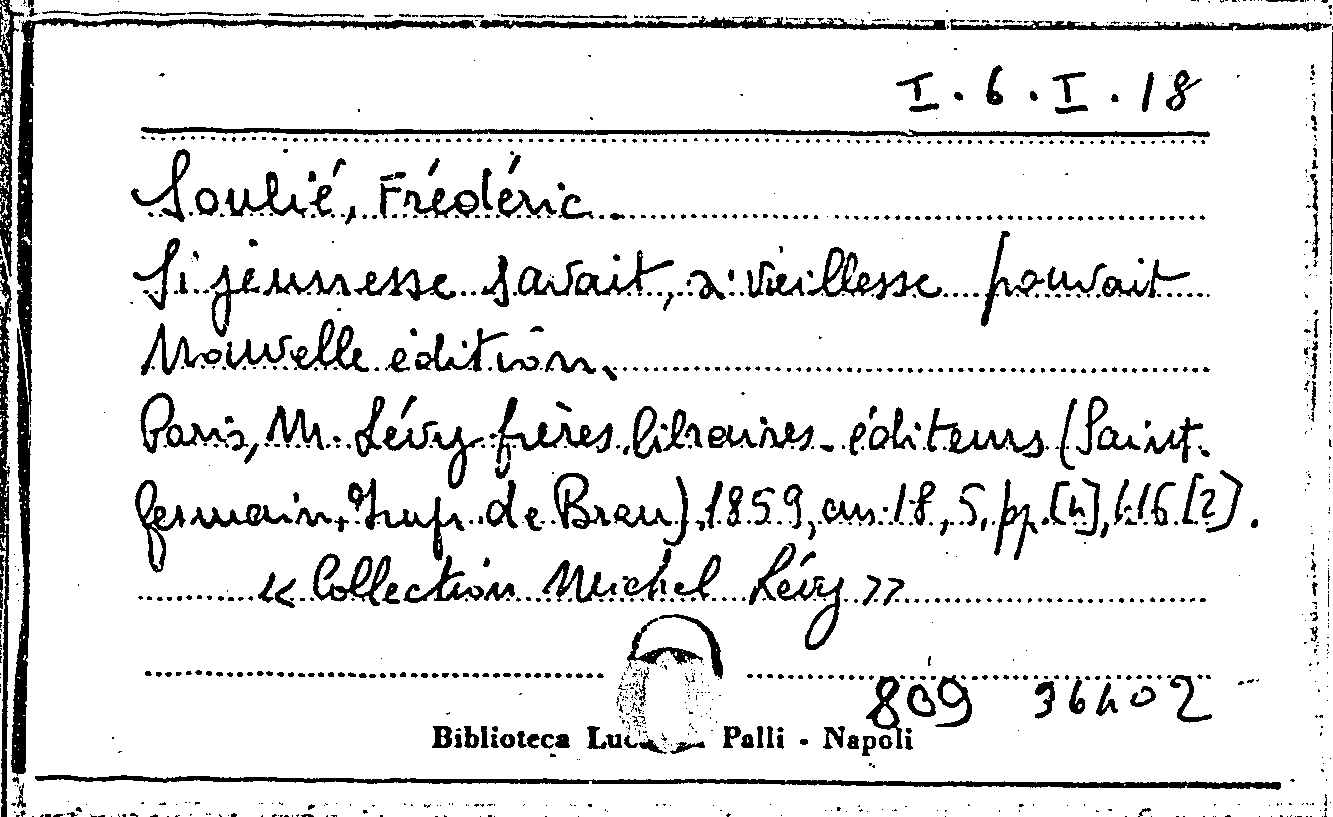 I. 6. I. 18
Soulié, Frédéric.
Si jeunesse savait, si vieillesse pouvait
Nouvelle édition.
Paris, M. Lévy frères, libraires-éditeurs (Saint-
Germain, Imp. de Brau), 1859, cm. 18,5, pp. [4], 416 [2].
« Collection Michel Lévy »
809 36402
Biblioteca Palli - Napoli